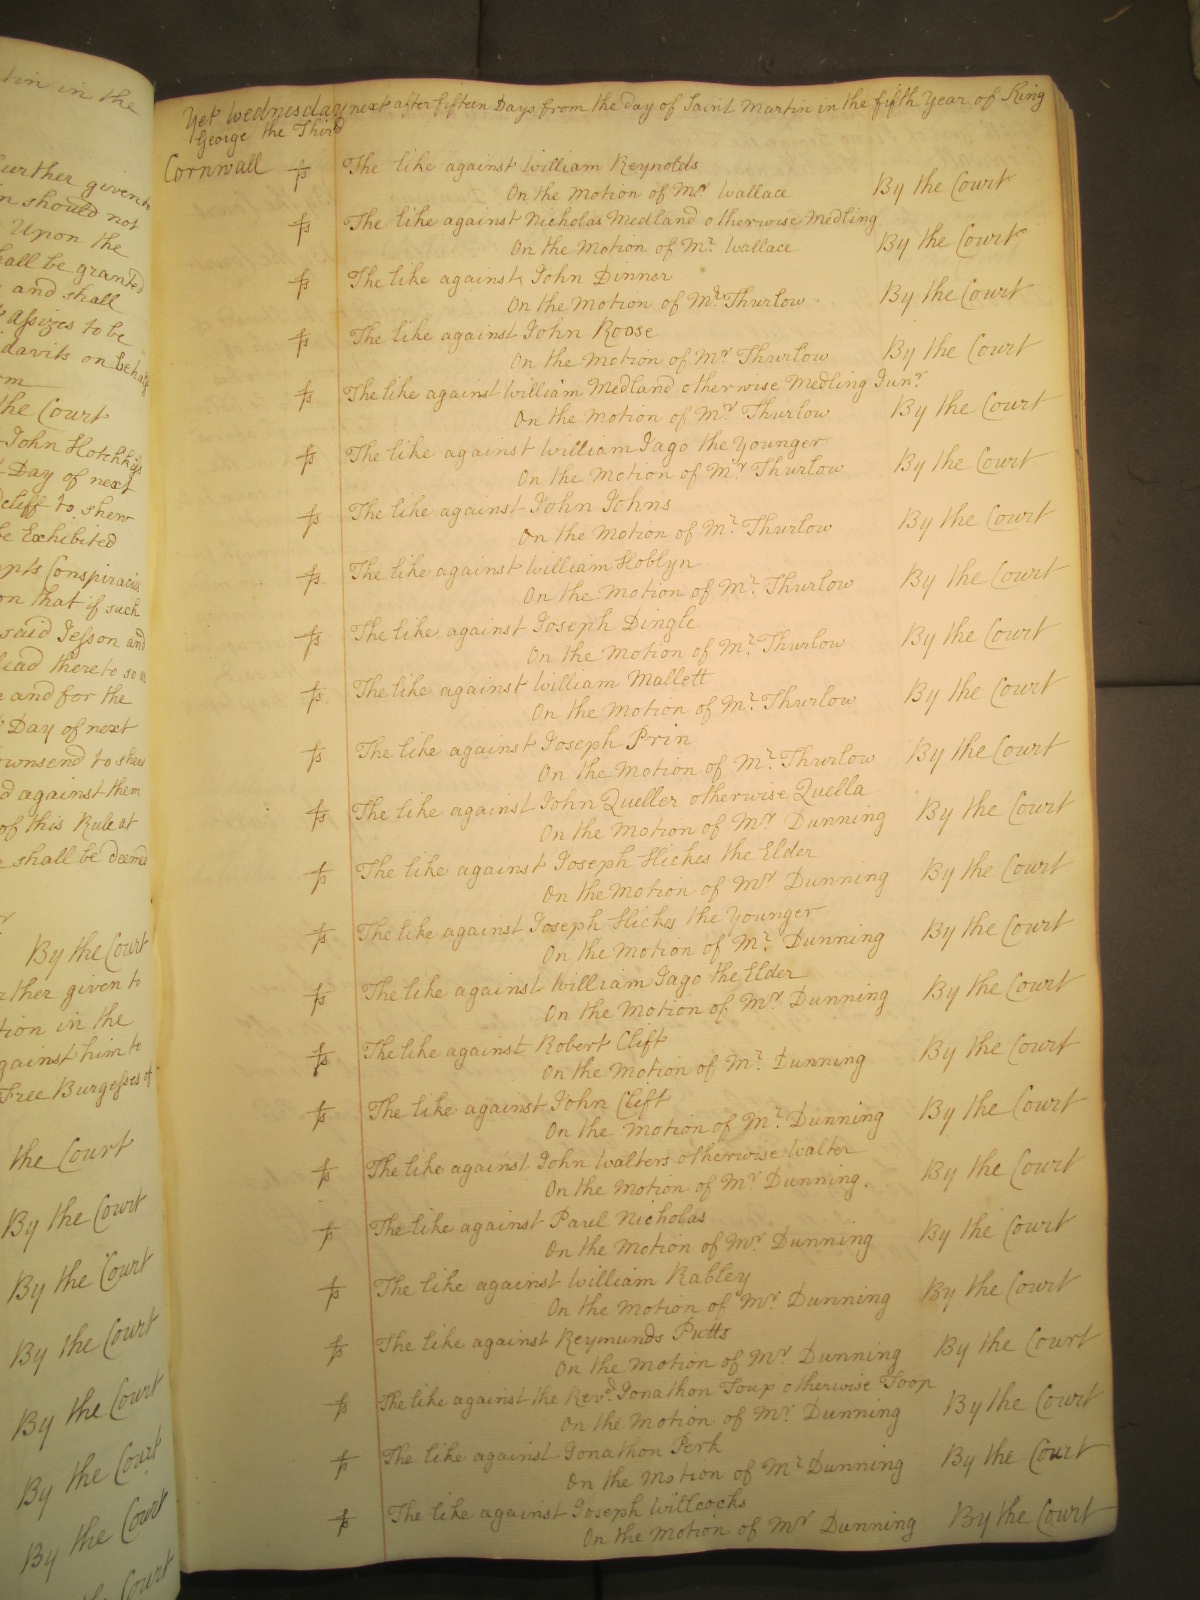 tin in the
further given to
n should not
Upon the
hall be granted
and shall
Assizes to be
davits on behalf
the Court
John Hotchkiss
Day of next
cliff to shew
be Exhibited
pts Conspiracies
on that if such
said Jesson and
lead thereto so as
e and for the
Day of next
ownsend to shew
d against them
of this Rule at
e shall be deemed
By the Court
rther given to
tion in the
against him to
Free Burgesses of
the Court
By the Court
By the Court
By the Court
By the Court
By the Court
By the Court
Court
Yet Wednesday next after fifteen Days from the day of Saint Martin in the fifth Year of King
George the Third
Cornwall The like against William Reynolds
On the Motion of Mr Wallace By the Court
The like against Nicholas Medland otherwise Medling
On the Motion of Mr Wallace By the Court
The like against John Dinner
On the Motion of Mr Thurlow By the Court
The like against John Roose
On the Motion of Mr Thurlow By the Court
The like against William Medland otherwise Medling Junr
On the Motion of Mr Thurlow By the Court
The like against William Jago the Younger
On the Motion of Mr Thurlow By the Court
The like against John Johns
On the Motion of Mr Thurlow By the Court
The like against William Hoblyn
On the Motion of Mr Thurlow By the Court
The like against Joseph Dingle
On the Motion of Mr Thurlow By the Court
The like against William Mallett
On the Motion of Mr Thurlow By the Court
The like against Joseph Prin
On the Motion of Mr Thurlow By the Court
The like against John Queller otherwise Quella
On the Motion of Mr Dunning By the Court
The like against Joseph Hickes the Elder
On the Motion of Mr Dunning By the Court
The like against Joseph Hickes the Younger
On the Motion of Mr Dunning By the Court
The like against William Jago the Elder
On the Motion of Mr Dunning By the Court
The like against Robert Clift
On the Motion of Mr Dunning By the Court
The like against John Clift
On the Motion of Mr Dunning By the Court
The like against John Walters otherwise Walter
On the Motion of Mr Dunning. By the Court
The like against Paul Nicholas
On the Motion of Mr Dunning By the Court
The like against William Rabley
On the Motion of Mr Dunning By the Court
The like against Reymunds Putts
On the Motion of Mr Dunning By the Court
The like against the Revd Jonathon Toup otherwise Toop
On the Motion of Mr Dunning By the Court
The like against Jonathon Perk
On the Motion of Mr Dunning By the Court
The like against Joseph Willcocks
On the Motion of Mr Dunning By the Court